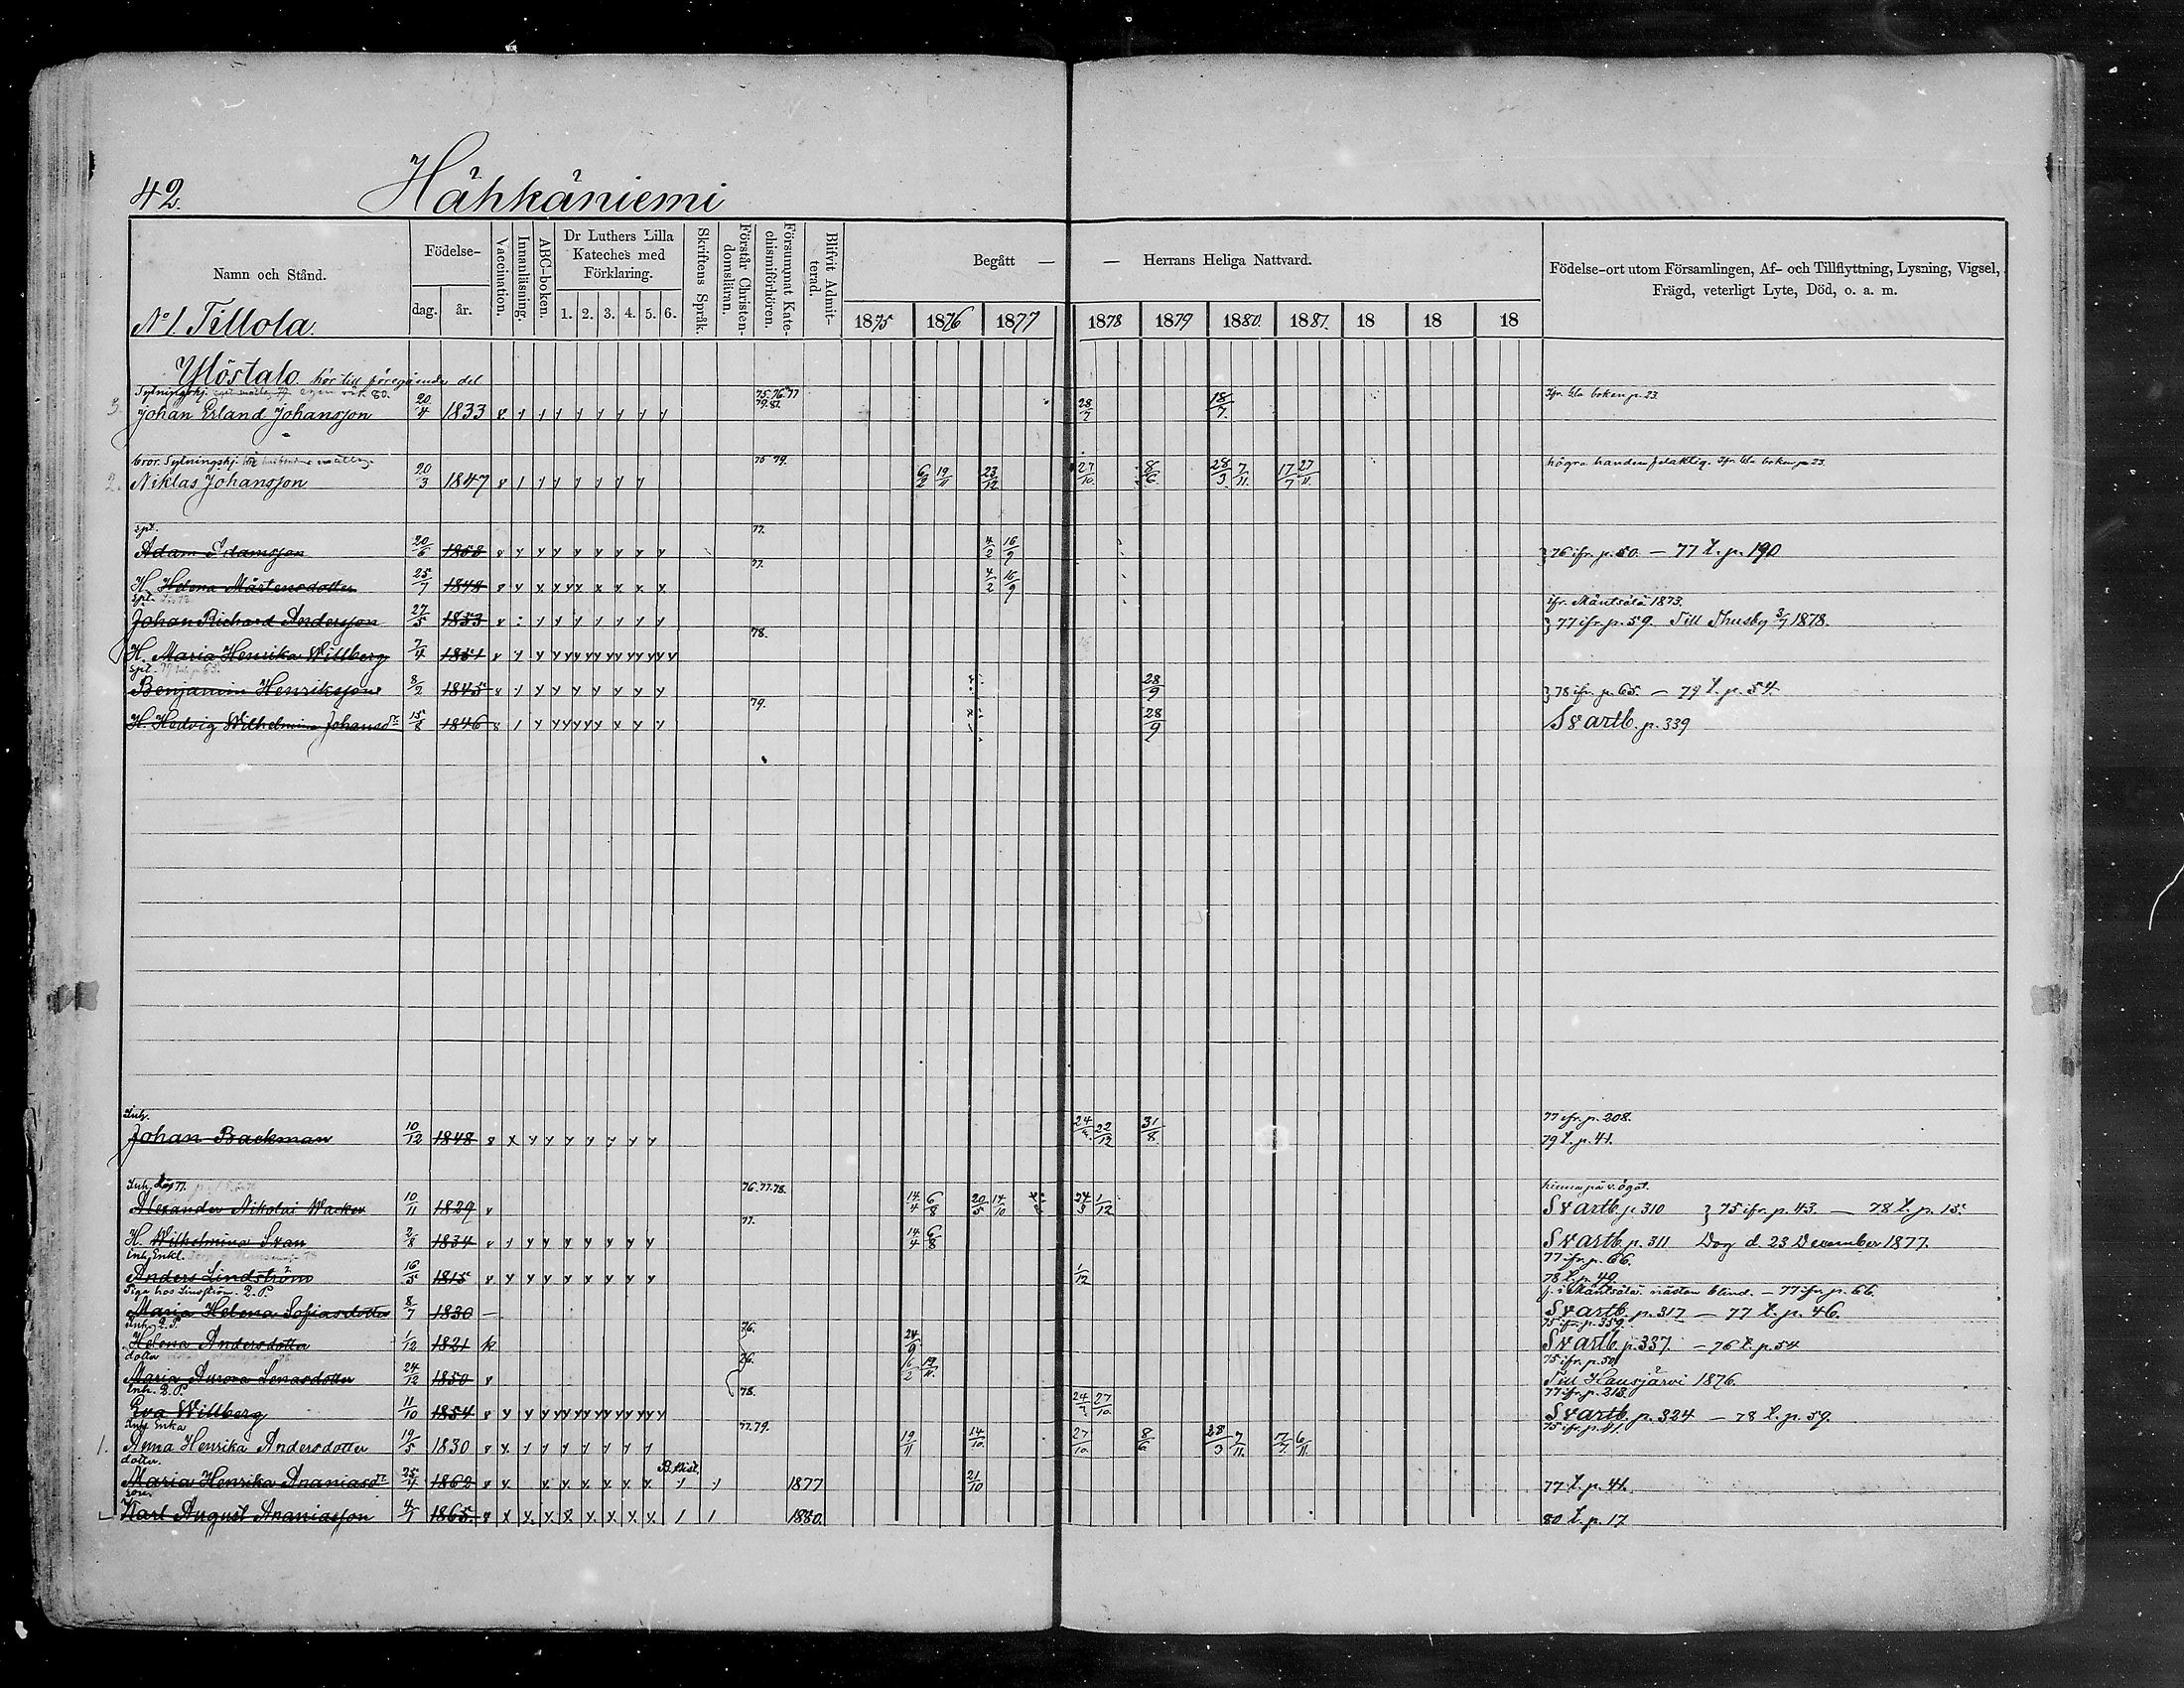 42. Hähkäniemi
Namn och Stånd.
Födelse-
dag. år.
Vaccination.
Innanläsning.
ABC-boken.
Dr Luthers Lilla Kateches med Förklaring.
1. 2. 3. 4. 5. 6.
Skriftens Språk.
Förstår Christendomsläran.
Försummat Katechismiförhören.
Blifvit Admitterad.
Begått — — Herrans Heliga Nattvard.
1875 1876 1877 1878 1879 1880. 1881. 18 18 18
Födelse-ort utom Församlingen, Af- och Tillflyttning, Lysning, Vigsel,
Frägd, veterligt Lyte, Död, o. a. m.
No 1. Tillola.
Ylöstalo. hör till föregående del
Sytningskj. 80. 75. 76. 77 79. 81. Ifr. bla boken p. 23.
3. Johan Erland Johansson 20/4 1833 28/7 18/7.
bror. Sytningskj. 75 79. högra handen felaktig. Ifr. bla boken p. 23.
2. Niklas Johansson 20/3 1847 6/2 19/11 23/12 27/10. 8/6. 28/3 7/11. 17/7 27/11.
Spt. 77.
Adam Adamsson 20/6 1858 4/2 16/9 } 76 ifr. p. 50. — 77 t. p. 190
77.
H. Helena Mårtensdotter 25/7 1848 4/2 16/9
Spt. ifr. Mäntsälä 1873.
Johan Richard Andersson 27/5 1853 } 77 ifr. p. 59. Till Thusby 3/7 1878.
78.
H. Maria Henrika Willberg 7/4 1851
Spt.
Benjamin Henriksson 8/2 1845 28/9 } 78 ifr. p. 65. — 79 t. p. 54
79.
H. Hedvig Wilhelmina Johansdr 15/8 1846 28/9 Svartb. p. 339
Inh. 77 ifr. p. 208.
Johan Backman 10/12 1848 22/12 31/8. 79 t. p. 41.
Inh. 76. 77. 78. hinna på v. ögat.
Alexander Nikolai Wacker 10/11 1829 14/4 6/8 20/5 14/10 24/3 1/12 Svartb. p. 310 } 75 ifr. p. 43. — 78 t. p. 15.
77.
H. Wilhelmina Svan 2/8 1834 14/4 6/8 Svartb. p. 311 Dog d. 23 December 1877.
Inh. Enkl. 77 ifr. p. 66.
Anders Lindström 16/5 1815 1/12 78 t. p. 49.
Piga hos Lindström. 2. P. f. i Mäntsälä. nästan blind. — 77 ifr. p. 66.
Maria Helena Sofiasdotter 8/7 1830 — Svartb. p. 317 — 77 t. p. 46.
Inh. 2. P. 76. 75 ifr. p. 359.
Helena Andersdotter 1/12 1821 24/9 Svartb. p. 337. — 76 t. p. 54
dotter 76. 75 ifr. p. 50
Maria Aurora Lenasdotter 24/12 1850 6/2 19/11. Till Hausjärvi 1876.
Inh. 2. P. 78. 77 ifr. p. 213.
Eva Willberg 11/10 1854 27/10. Svartb. p. 324 — 78 t. p. 59.
Inh. Enka 77. 79. 75 ifr. p. 41.
1. Anna Henrika Andersdotter 19/5 1830 19/11 14/10. 27/10. 8/6 28/3 7/11. 6/11.
dotter. B. hist.
Maria Henrika Ananiasdr 1862 1877 21/10 77 t. p. 41.
son
Karl August Ananiasson 4/7 1865. 1880. 80 t. p. 17